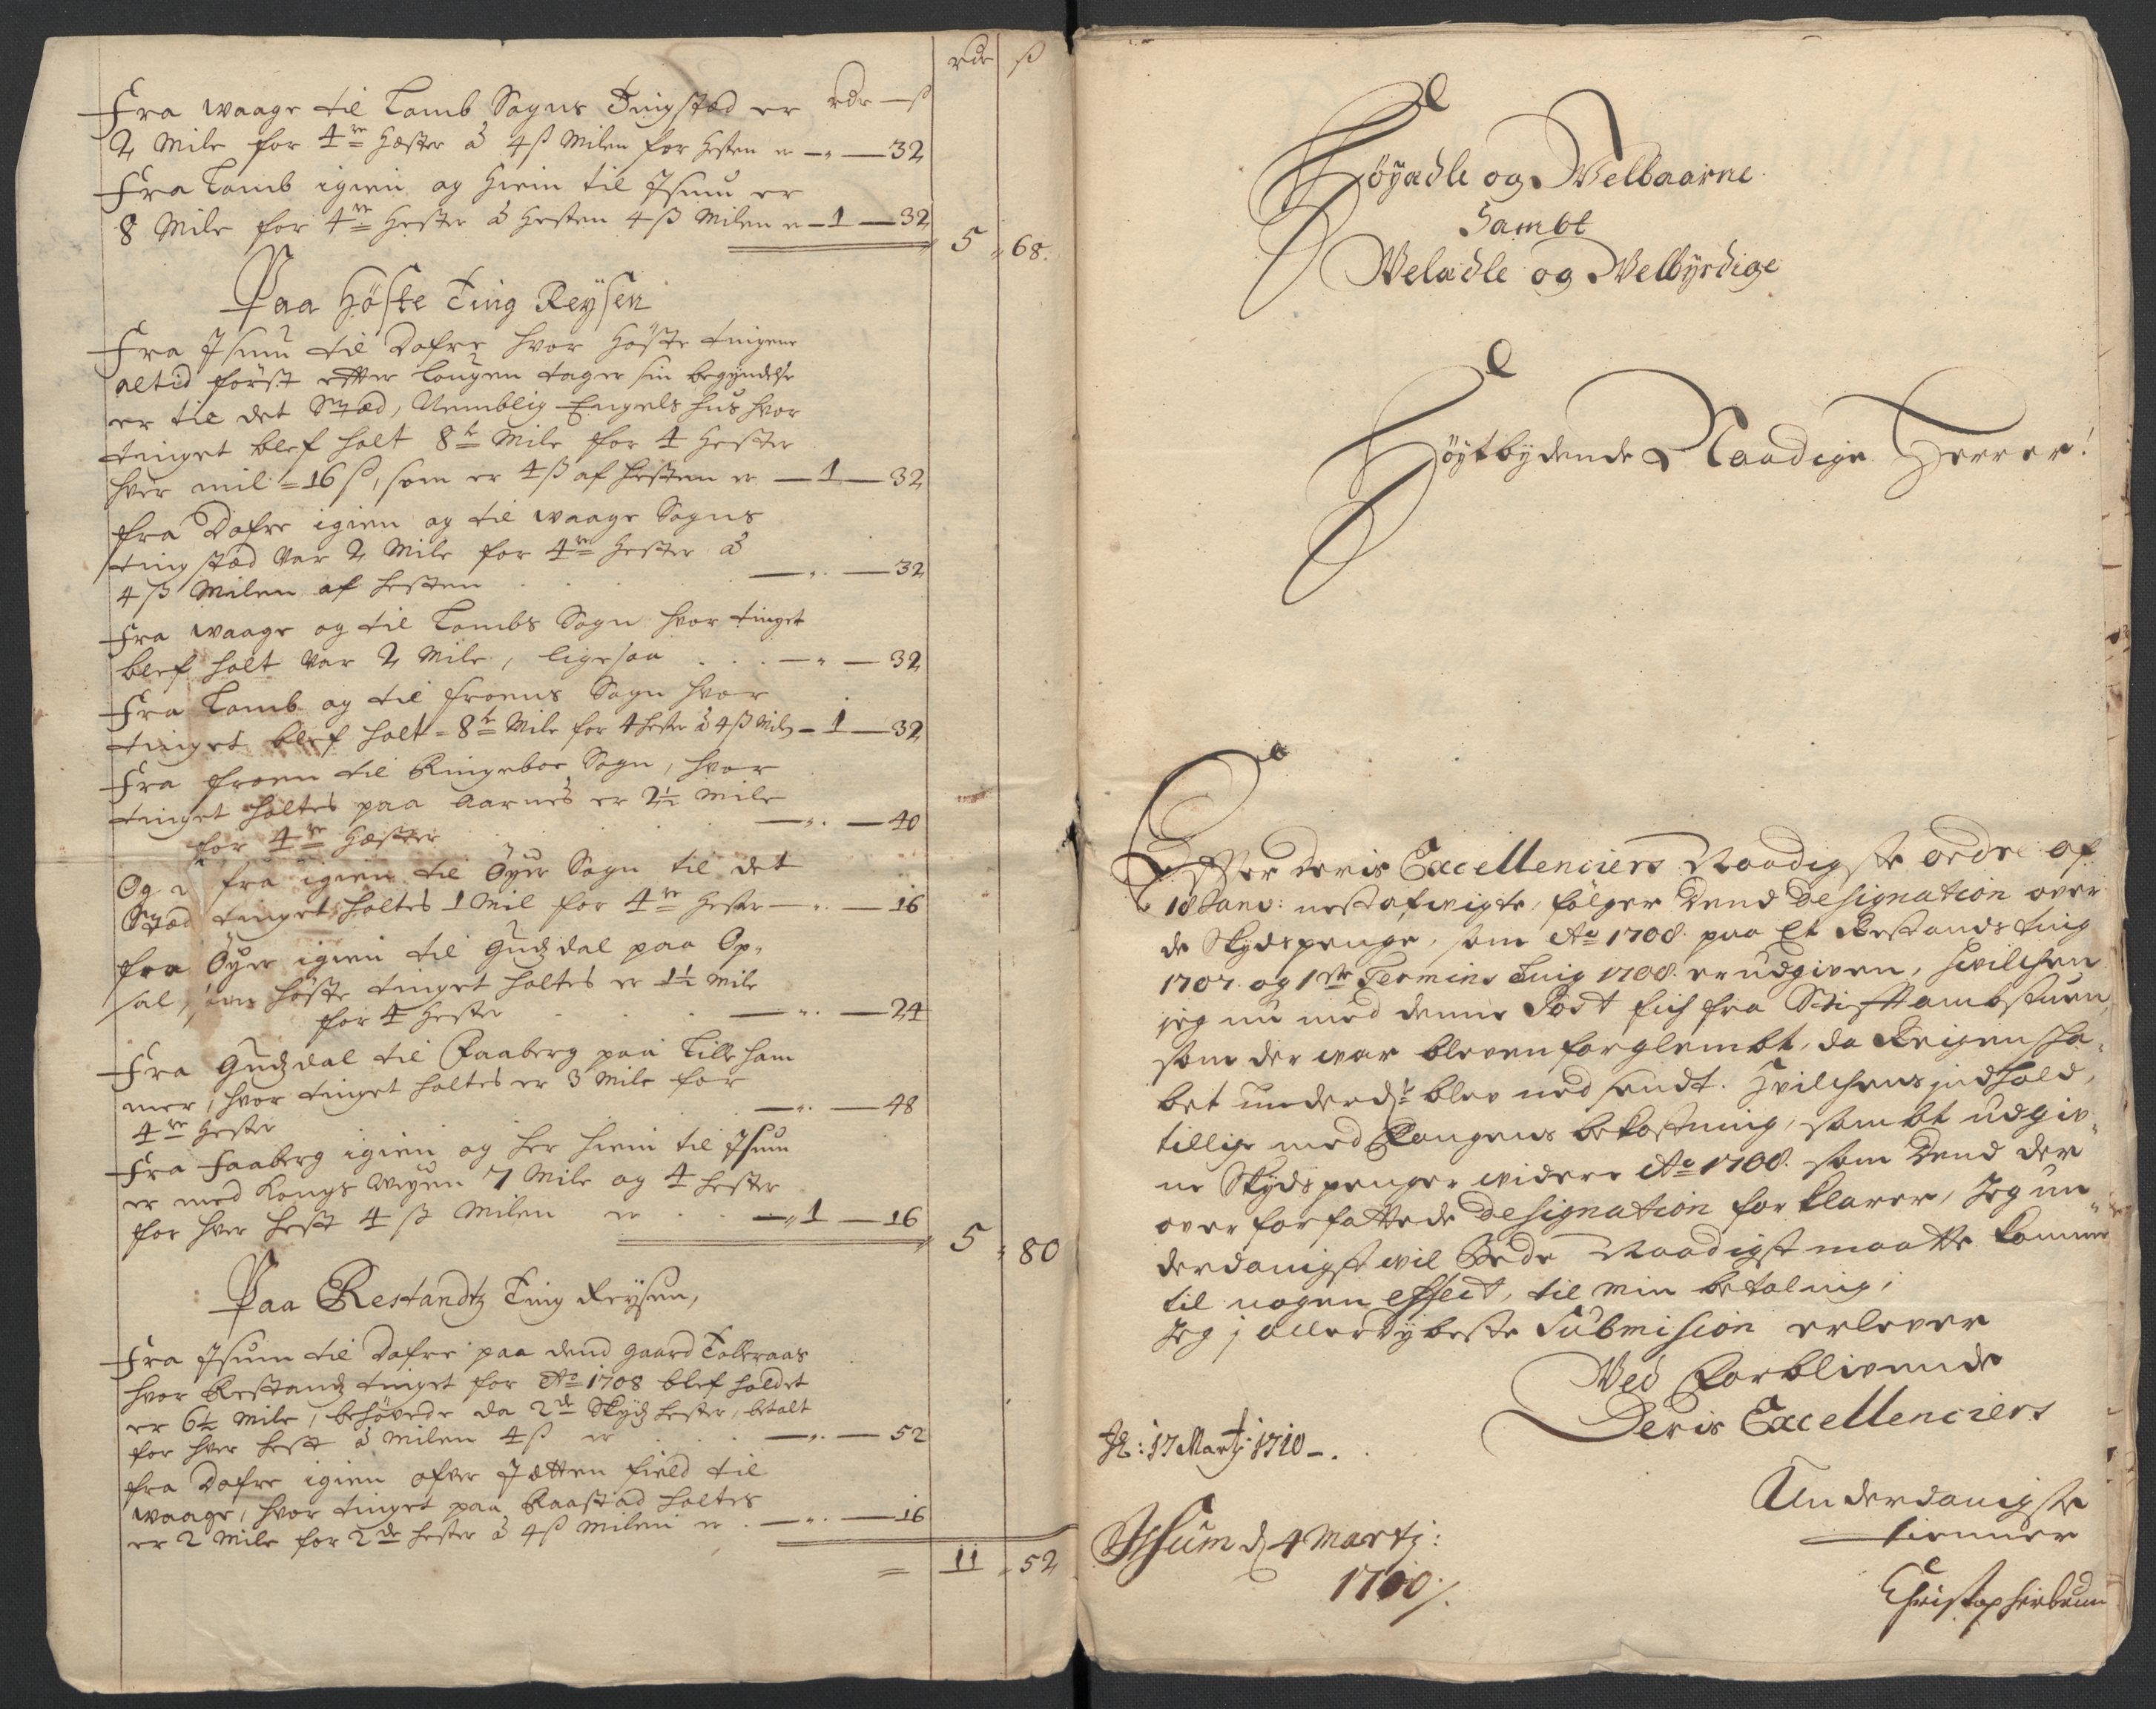 rdr ß
Fra Waage til Lomb Sogns Tingstæd er rdr — ß
2 Mile for 4re Hæster á 4ß Milen for Hesten er — „ — 32
Fra Lomb igien og Hiem til Isum er
8 Mile for 4re Hester á Hesten 4ß Milen er — 1 — 32
5 „ 68.
Paa Höste Ting Reÿsen
Fra Isum til Dofre hvor Höste tingene
altid först efter Lougen tager sin begÿndelse
er til det Stæd, Nemblig Engelshus hvor
tinget blef holt 8te Mile for 4 Hester
hver mil = 16ß, som er 4ß af Hesten er — 1 — 32
fra Dofre igien og til Waage Sogns
tingstæd var 2 Mile for 4re Hester á
4ß Milen af Hesten . . . — „ — 32
Fra Waage og til Lombs Sogn hvor tinget
blef holt var 2 Mile, ligesaa . . . — „ — 32
Fra Lomb og til Froens Sogn hvor
tinget blef holt = 8te Mile for 4 Hester á 4ß Milen — 1 — 32
Fra Froen til Ringeboe Sogn, hvor
tinget holtes paa Aarnes er 2½ Mile
for 4re Hæster . . . — „ — 40
Og fra igien til Öÿer Sogn til det
Stæd tinget holtes 1 Mil for 4re Hester — „ — 16
fra Öÿer igien til Gudsdal paa Op-
sal, hvor Höste tinget holtes er 1½ Mile
for 4 Hester . . . — „ — 24
Fra Gudsdal til Faaberg paa Lilleham
mer, hvor tinget holtes er 3 Mile for
4re Hester . . . — „ — 48
Fra Faaberg igien og her hiem til Isum
er med Kongs Weÿen 7 Mile og 4 Hester
for hver Hest 4ß Milen er . . — „ 1 — 16
5 „ 80
Paa Restandtz Ting Reÿsen,
Fra Isum til Dofre paa dend Gaard Tofteraas
hvor Restandz tinget for Ao 1708 blef holdet
er 6½ Mile, behövede da 2de Skÿdz Hester, betalt
for hver Hest á Milen 4ß er . . . — „ — 52
fra Dofre igien ofver Jetten field til
Waage, hvor tinget paa Raastad holtes
er 2 Mile for 2de Hester á 4ß Milen er . — „ — 16
= 11 „ 52
Höÿædle og Welbaarne
Sambt
Welædle og Welbÿrdige
Höÿtbydende Naadige Herrer!
Effter Deris Excellenciers Naadigste ordre af
18 Janv: nestafvigte, fölger Dend Designation over
de Skÿdspenge, som Ao 1708. paa Et Restands ting
1707. og 1ste Termins Ting 1708. er udgiven, hvilchen
jeg nu med denne Post fich fra Stifftambtstuen,
som der war bleven forglembt, da Reigenska-
bet underds: blev ned sendt. Hvilchens indhold,
tillige med Fangens bekostning, sambt udgiv-
ne Skÿdspenge videre Ao 1708. som Dend der
over forfattede Designation forklarer, Jeg un-
derdanigst wil Bede Naadigst maatte komme
til nogen effect, til min betaling,
Jeg i allerdÿbeste Submision erlever
Ved Forblivende
Deris Excellenciers
Underdanigste
tienner
Christopher
ps: 17 Martj: 1710 —.
Isum d 4 Martj:
1710 /.